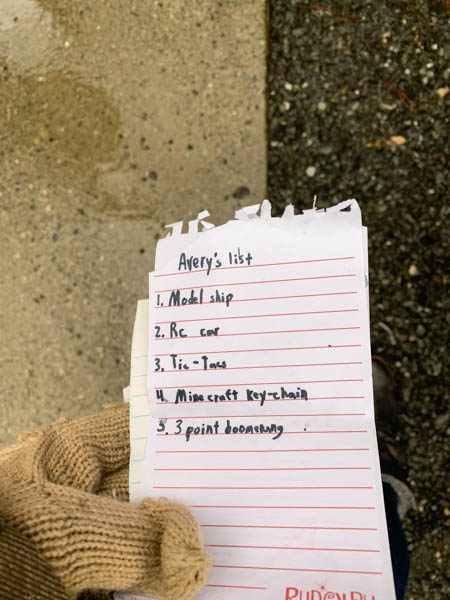 Avery's list
1. Model ship
2. Rc car
3. Tic-Tacs
4. Minecraft key-chain
5. 3 point boomerang
RUDOLPH